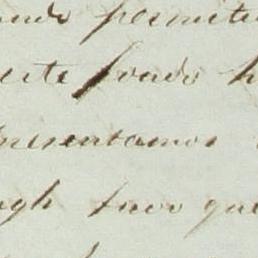 ando permite
este fondo h
presentamos
ugh tuvo que